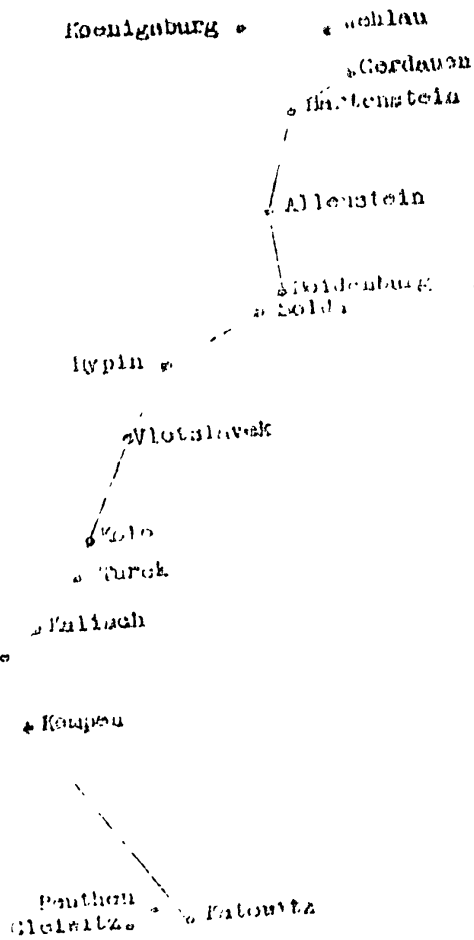 Koenigsburg
Wehlau
Gerdauen
Bartenstein
Allenstein
Neidenburg
Soldau
Rypin
Vlotslavek
Kolo
Turek
Kalisch
Kempen
Beuthen
Gleiwitz
Katowitz